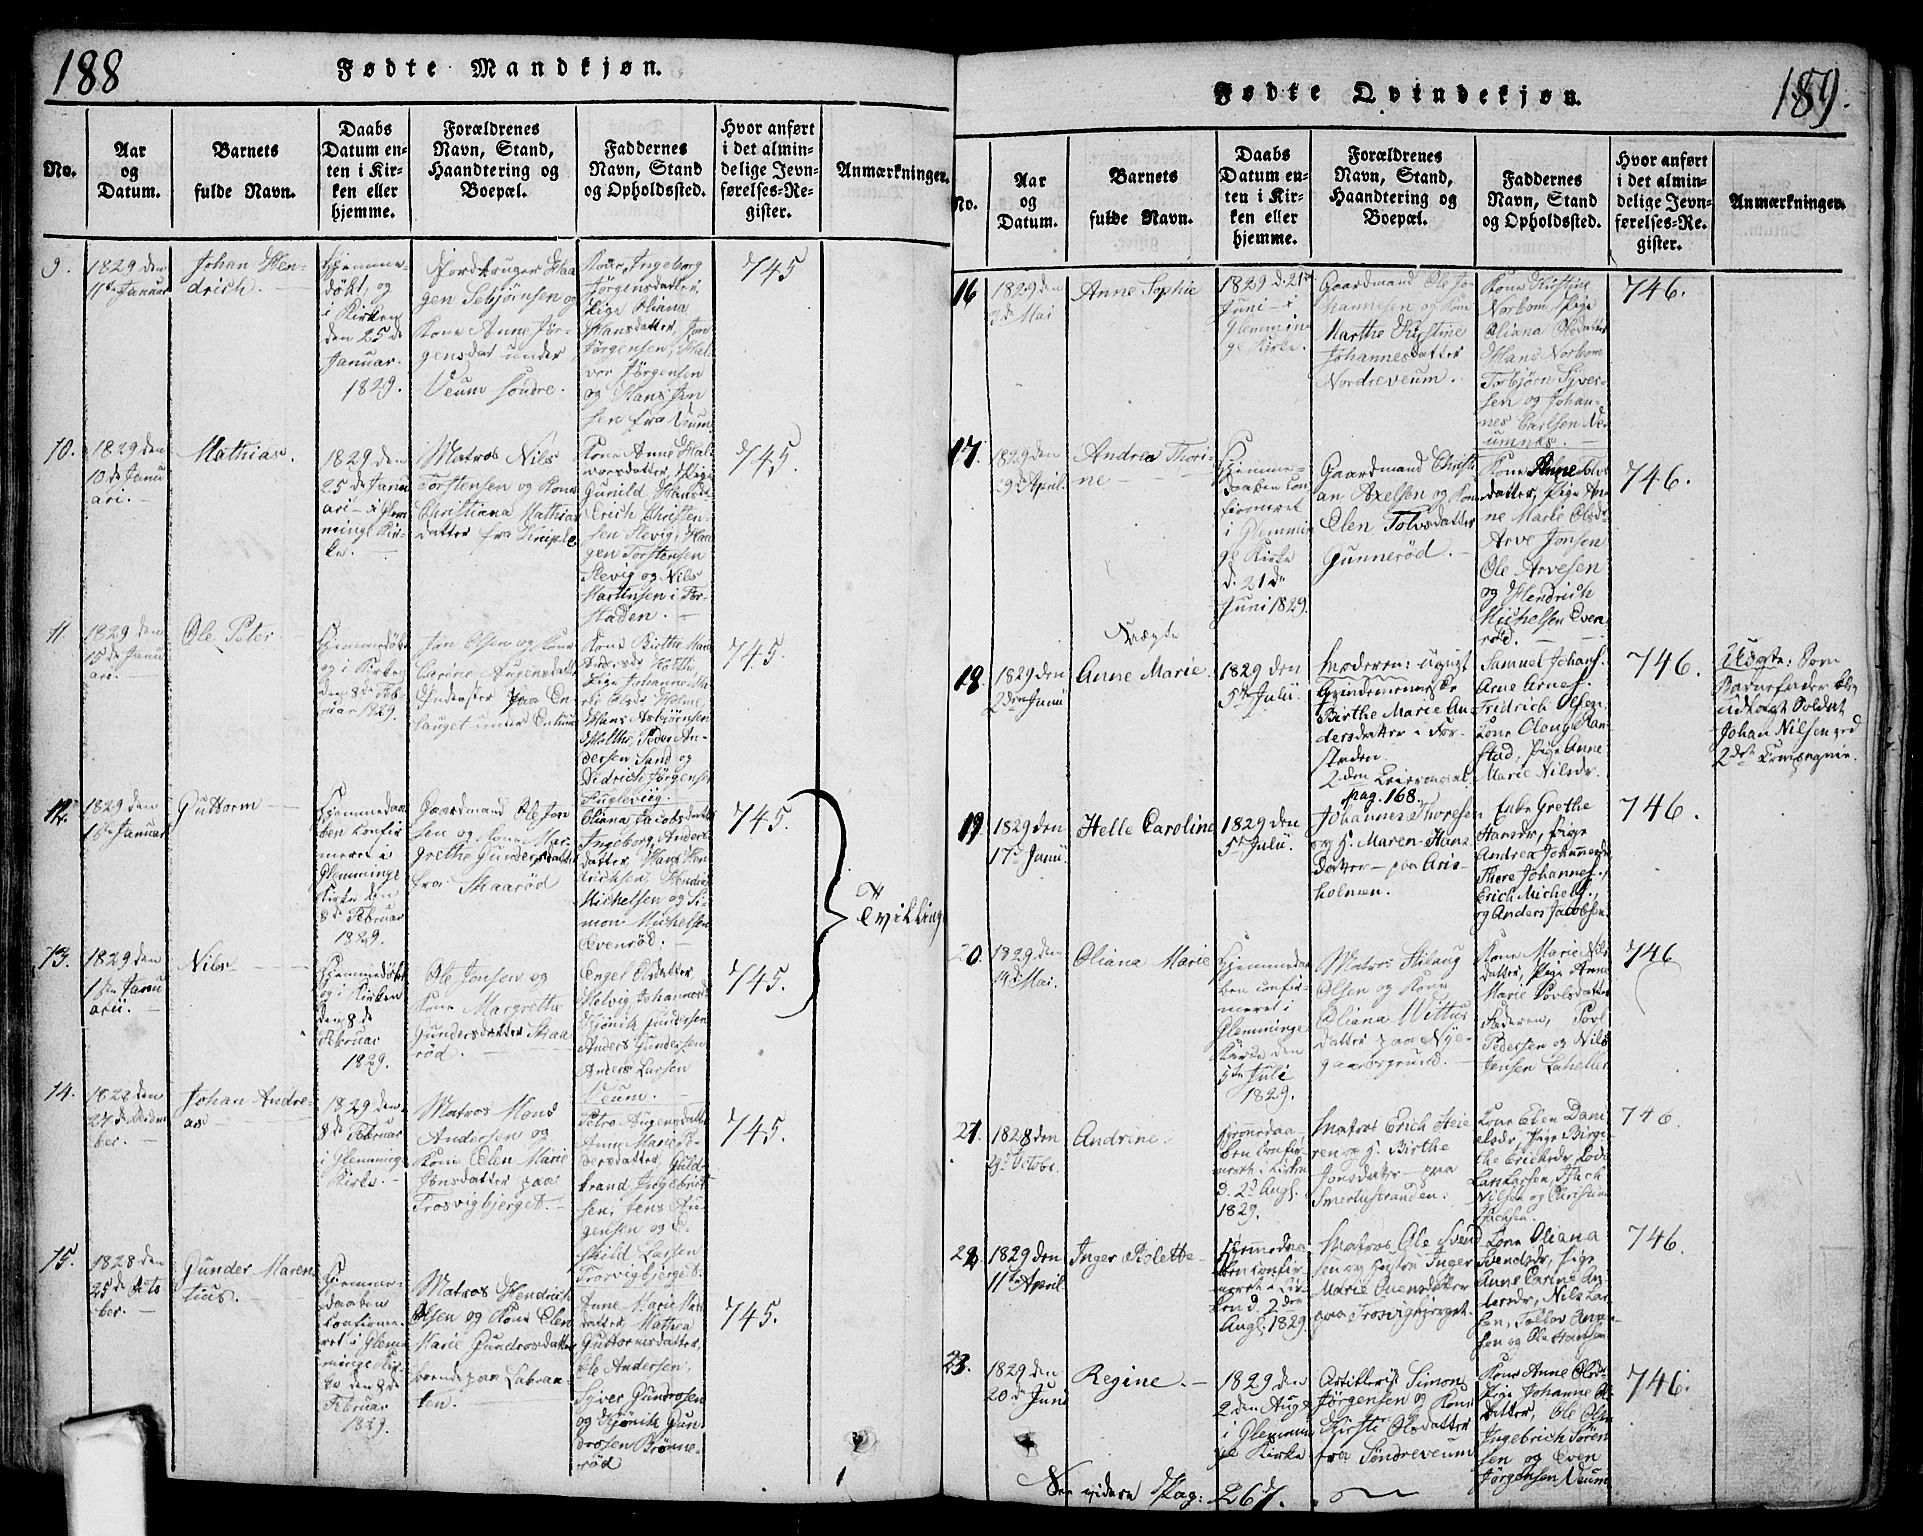 188
Fødte Mandkjøn.
No.
Aar
og
Datum.
Barnets
fulde Navn.
Daabs
Datum en-
ten i Kir-
ken eller
hjemme.
Forældrenes
Navn, Stand,
Haandtering og
Boepæl.
Faddernes
Navn, Stand
og Opholdssted.
Hvor anført
i det almin-
delige Jevn-
førelses-Re-
gister.
Anmærkninger.
9.
1829 den
11te Januar
Johan Hen-
drich.
Hjemme-
døbt, og
i Kirken
den 25de
Januar.
1829.
Haa
gen Sebjørnsen og
Kone Anne Jør-
gensdat under
Veum søndre.
Kone Ingeborg
Jørgensdatter,
Pige Oliana
Hansdatter, Jon
Jørgensen, Hal-
vor Jørgensen
og Hans Jen
sen fra Veum
745
10.
1829 den
10de Janu
ari.
Mathias.
1829 den
25de Janu
ari i Glem
minge Kir-
ke.
Matros Nils
Torstensen og Kone
Christiana Mathias
datter fra Kimple
Kone Anne Hal-
vorsdatter, Pige
Gunild Hansd.
Erich Christen-
sen Slevig, Haa
gen Torstensen
Slevig og Nils
Martinsen i For-
staden.
745.
11.
1829 den
15de Janu
ari.
Ole Peter
Hjemmedøbt
og i Kirken
den 8de Feb-
ruar 1829.
Jon Olsen og Kone
Carine Augensdatter
Kone Birthe Marie
Pige Johanne
Hans Asbjørnsen
Holthe, Peder An-
dersen Sand og
Didrich Jørgensen
Fuglevig.
745.
12.
1829 den
1ste Januar
Guttorm
Hjemmedaa
ben confir
meret i
Glemminge
Kirke den
8de Februar
1829.
Gaardmand Ole Jon
sen og Kone Mar-
grethe Gundersdatter
fra Skaarød
Oliana Jacobsdatter
Ingeborg Anders
datter, Hans Hen
drichsen, Hendrich
Michelsen og Si-
mon Michelsen
Evenrød.
745.
Tvilling
13.
1829 den
1ste Janu
arii.
Nils
Hjemmedøbt
og i Kirken
den 8de
Februar
1829.
Ole Jonsen og
Kone Margrethe
Gundersdatter Skaa
rød.
Engel Olsdatter
Helvig Johannesd.
Kjønik Gundersen
Anders Gundersen
Anders Larsen
Veum.
745.
14.
1828 den
27de Decem
ber.
Johan Andre-
as
1829 den
8de Februar
i Glemminge
Kirke.
Matros Mons
Andersen og
Kone Elen Marie
Jonsdatter paa
Trosvigbjerget.
Petro Augensdatter
Anne Marie Pe-
dersdatter, Guld-
brand Ingebret
sen, Jens Au-
gensen og E-
skild Larsen
Trosvigbjerget.
745.
15.
1828 den
25de Octo
ber.
Gunder Maren
tius.
Hjemme-
daaben
confirme-
ret i Glem
minge Kir-
ke den 8de
Februar
1829.
Matros Hendrich
Olsen og Kone Elen
Marie Gundrosdatter
boende paa Labraa-
ten.
Anne Marie Mat
datter, Mathea
Guttormsdatter,
Ole Andersen,
Syver Gundrosen
og Kjønik Gun
drosen Brønne-
rød
745.
189.
Fødte Qvindekjøn.
No.
Aar
og
Datum.
Barnets
fulde Navn.
Daabs
Datum en-
ten i Kir-
ken eller
hjemme.
Forældrenes
Navn, Stand,
Haandtering og
Boepæl.
Faddernes
Navn, Stand
og Opholdssted.
Hvor anført
i det almin-
delige Jevn-
førelses-Re-
gister.
Anmærkninger.
16
1829 den
3de Mai
Anne Sophie
1829 d. 21de
Juni i
Glemmin
ge Kirke.
Gaardmand Ole Jo-
hannesen og Kone
Marthe Kirstine
Johannesdatter
Nordreveum.
Kone Kirstine
Norbom, Pige
Oliana Olsdatter
Hans Norbom
Torbjørn Syver-
sen og Johan-
nes Carlsen Ve-
umnæs.
746.
17.
1829 den
29de April.
Andrea Thori-
ne
Hjemme-
daaben con
firmeret
i Glemmin
ge Kirke
d. 21de
Juni 1829.
Gaardmand Christi
an Axelsen og Kone
Elen Tolvsdatter
Gunnerød.
Kone Anne
datter, Pige An-
ne Marie Olsdr
Arve Jonsen
Ole Arvesen
og Hendrich
Michelsen Even
rød.
746.
18.
1829 den
23de Junii
Uægte
Anne Marie.
1829 den
5te Julii.
Moderen: ugivt
Qvindemenneske
Birthe Marie An
dersdatter i For-
staden.
2den Leiermaal
pag. 168.
Samuel Johans.
Arne Arnes.
Fridrich Olsen.
Kone Olaug Ran
stad, Pige Anne
Marie Nilsdr.
746.
Uægte: Som
Barnefader blev
udlagt Soldat
Johan Nilsen ved
2det Compagnie.
19
1829 den
17de Junii.
Helle Caroline
1829 den
5te Julii.
Johannes Thoresen
og H. Maren Hans
datter paa Aris-
holmen.
Enke Grethe
Hansdr, Pige
Andrea Johannesdr
Thore Johannes.,
Erich Michels.,
og Anders Jacobsen.
746.
20.
1829 den
14de Mai.
Oliana Marie
Hjemmedaa
ben confir-
meret i
Glemminge
Kirke den
5te Juli
1829.
Matros
Olsen og Kone
Oliana Wittus
datter paa Nye-
gaardsgrund.
Kone Marie Nils
datter, Pige Anne
Marie Povlsdatter
Faderen, Povl
Pedersen og Nils
Jensen Lahellen
746
21.
1828 den
29de Octobr.
Andrine.
Hjemmedaa
ben confir
meret i Kirken
d. 2de Augs.
1829.
Matros Erich Heie
ren og H. Birthe
Jonsdatter paa
Smertustranden.
Kone Elen Dani
elsdr, Pige Birgi-
the Ericksdr,
Lars Larsen, Isach
Nilsen og Christian
Isachsen.
746
22.
1829 den
11te April
Inger Piolette
Hjemmedaa
ben confir-
meret i Kir-
ken d. 2den
Augs. 1829.
Matros Ole Svend
sen og Hustru Inger
Marie Svensdatter
paa Trosvigbjerget.
Kone Oliana
Svendsdr, Pige
Anne Carine An-
dersdr, Nils Lar-
sen, Tollov Ano-
sen og Ole Hansen
746.
23.
1829 den
20de Juni
Regine.
1829 den
2den Augs.
i Glemmin
ge Kirke
Artillerist Simon
Jørgensen og Kone
Kirsti Olsdatter
fra Søndreveum
Kone Anne Olsdr
Pige Johanne Ols
datter, Ole Olsen
Ingebrich Søren
sen og Even
Jørgensen Veum.
746.
See videre Pag: 267.